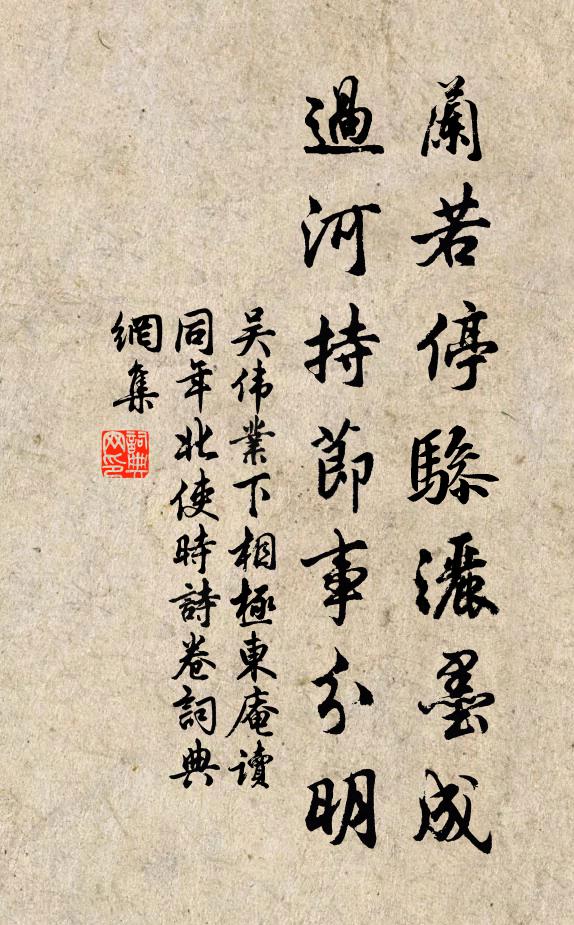 蘭若停驂灑墨成
過河持節事分明
吴伟業下相極東庵读
同年北使時詩卷詞典
網集
詞典網印